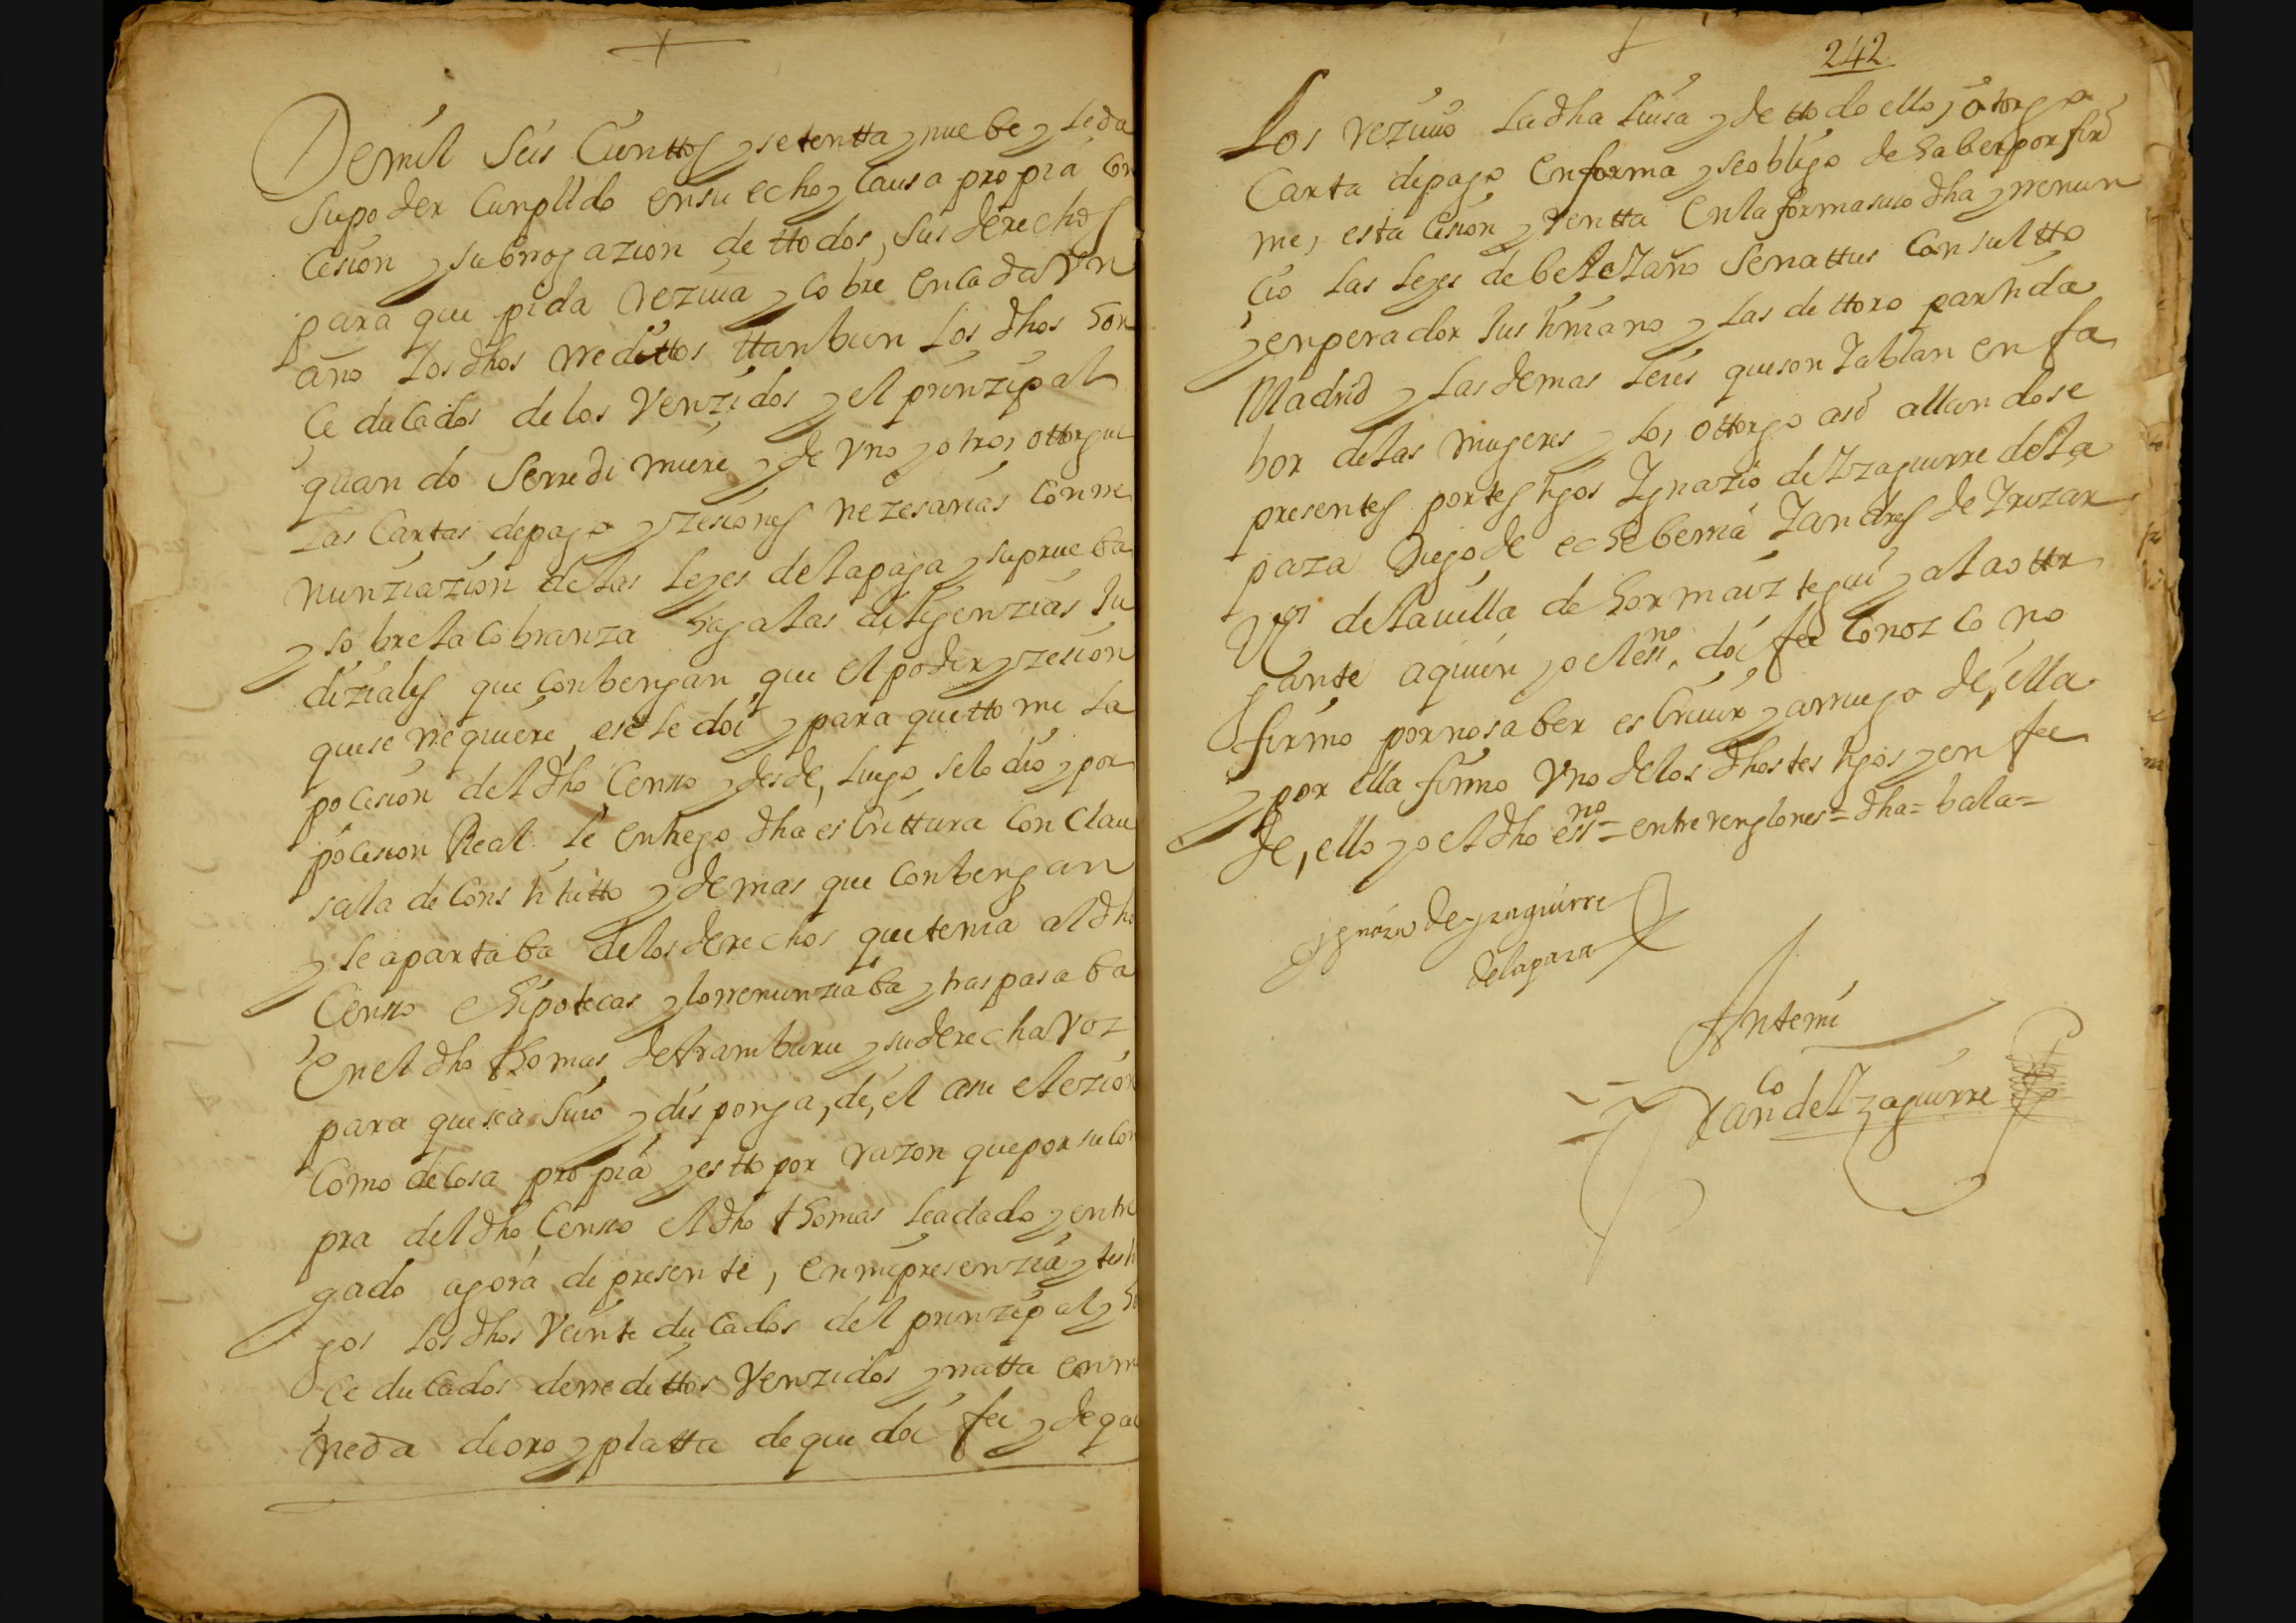 De mil Seis Cienttos y setentta y nuebe y le da
su poder Cunplido en su echo y Causa propia Con
Cesion y subrrogazion de ttodos, sus derechos
para que pida rreziua y cobre en cada Vn
año los dhos rredittos ttanbien los dhos hon
Ce ducados de los Venzidos y el prinzipal
quando Se rredimiere y de Vno y otro, ottorgue
las Cartas de pago y zesiones nezesarias Con rre
nunziazion de las leyes de la paga y su prueba
y sobre la cobranza haga las diligenzias Ju
diziales que conbengan que el poder y zesion
que se rrequiere ese le doi y para que ttome la
pocesion del dho Censso y desde, luego se lo dio y por
pocesion Real le entrego dha escrittura con Clau
sula de Constitutto y demas que conbengan
y se apartaba de los derechos que tenia al dho
Censso e hipotecas y lo rrenunziaba y traspasaba
En el dho thomas de Aramburu y su derecha voz
para que sea suio y disponga, de, el a su elezion
Como de cosa propia y estto por razon que por su con
pra del dho Censso el dho thomas le a dado y entre
gado agora de presente, en mi presenzia y testi
gos los dhos Veinte ducados del prinzipal y hon
Ce ducados de rredittos Venzidos y rratta en mo
neda de oro y platta de que doi fee y de que
242
Los reziuio la dha Luisa y de ttodo ello, otorgo
Carta de pago en forma y se obligo de haber por fir
me, esta cesion y Ventta en la forma suso dha y rrenun
cio las leyes de beleyano Senattus Consultto
y enperador Justiniano y las de ttoro partida
Madrid y las demas leies que son y ablan en fa
bor de las mugeres y lo, ottorgo asi allandose
presentes por testigos Ygnazio de Yzaguirre de la
paza Diego de echeberria y andres de Yrizar
Vos de la villa de hormaiztegui y a la ottor
gante a quien yo el essno. doi fee conozco no
firmo por no saber escriuir y a rruego de, ella
y por ella firmo Vno de los dhos testigos y en fee
de, ello yo el dho essno = entre renglones = dha = bala =
Ygnazio de yzaguirre
de la paza
Ante mi
Franco de Yzaguirre